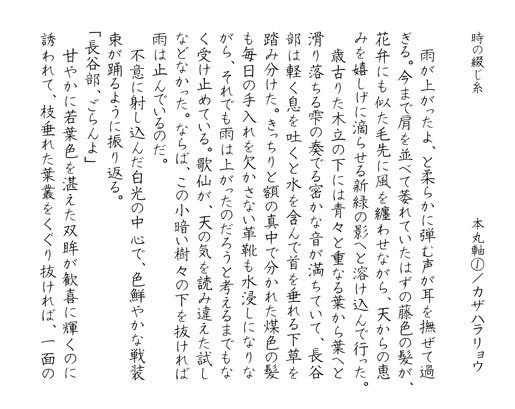 時の綴じ糸
本丸軸①／カザハラリョウ
雨が上がったよ、と柔らかに弾む声が耳を撫ぜて過
ぎる。今まで肩を並べて萎れていたはずの藤色の髪が、
花弁にも似た毛先に風を纏わせながら、天からの恵
みを嬉しげに滴らせる新緑の影へと溶け込んで行った。
歳古りた木立の下には青々と重なる葉から葉へと
滑り落ちる雫の奏でる密かな音が満ちていて、長谷
部は軽く息を吐くと水を含んで首を垂れる下草を
踏み分けた。きっちりと額の真中で分かれた煤色の髪
も毎日の手入れを欠かさない革靴も水浸しになりな
がら、それでも雨は上がったのだろうと考えるまでもな
く受け止めている。歌仙が、天の気を読み違えた試し
などなかった。ならば、この小暗い樹々の下を抜ければ
雨は止んでいるのだ。
不意に射し込んだ白光の中心で、色鮮やかな戦装
束が踊るように振り返る。
「長谷部、ごらんよ」
甘やかに若葉色を湛えた双眸が歓喜に輝くのに
誘われて、枝垂れた葉叢をくぐり抜ければ、一面の